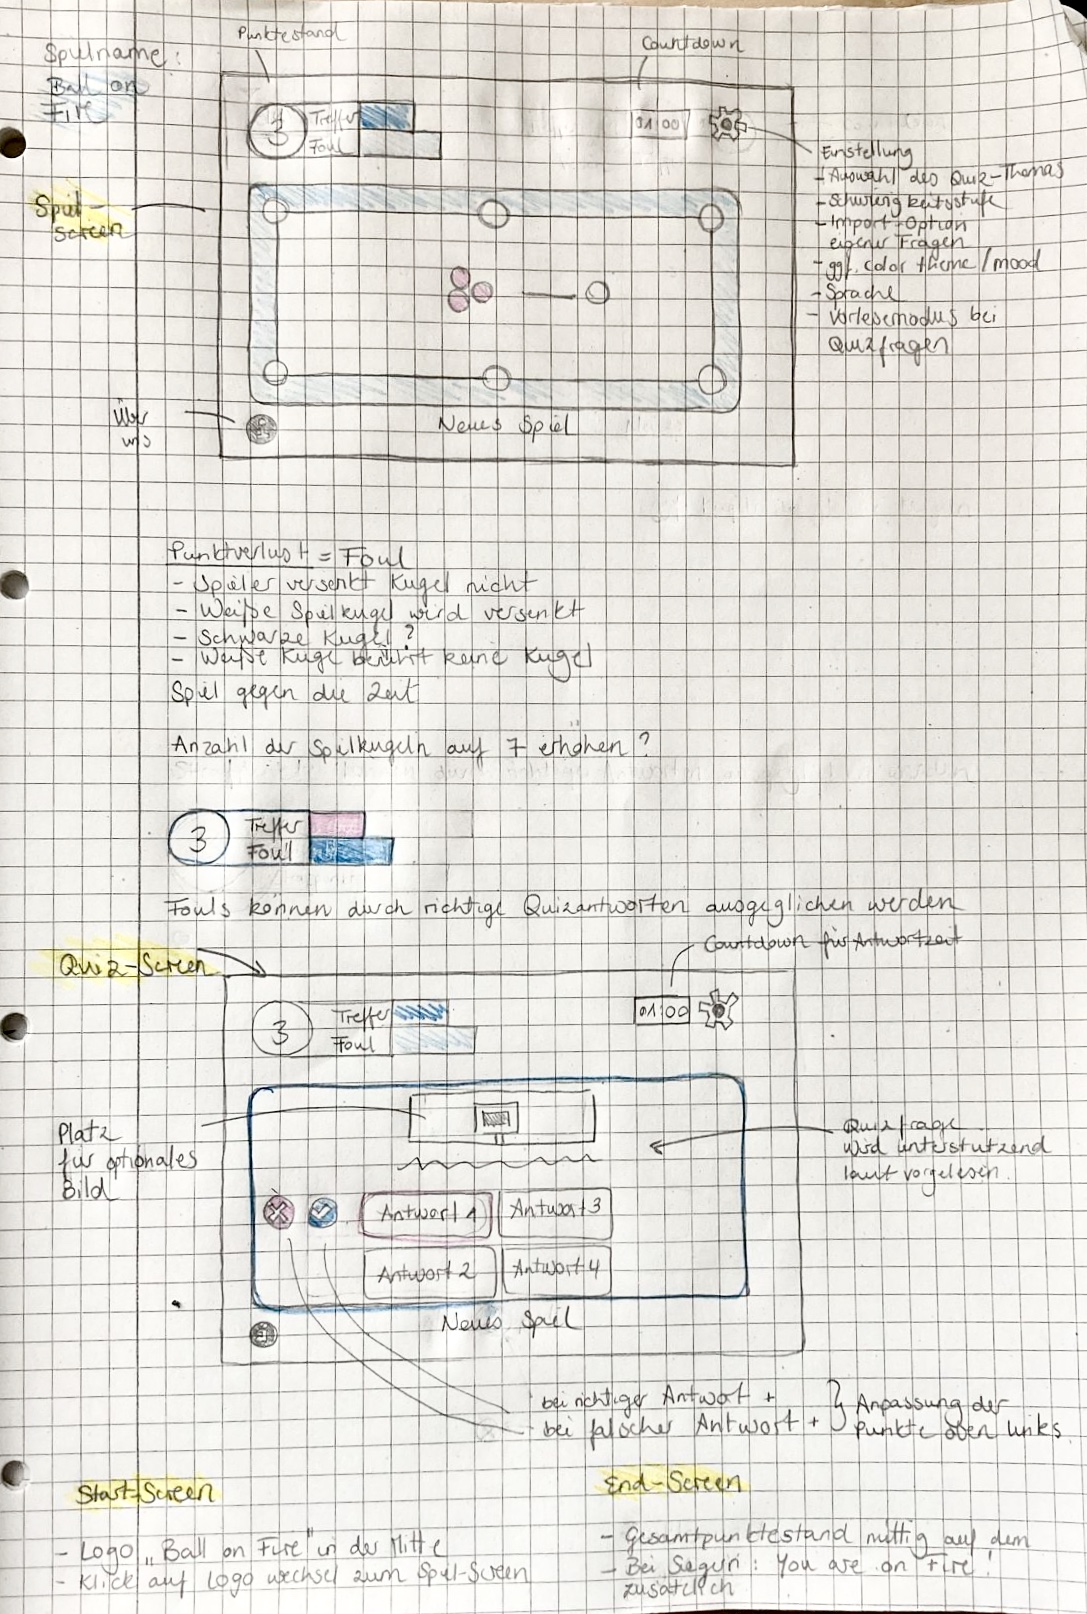 Spielname:
Ball on
Fire
Punktestand
Countdown
3
Treffer
Foul
01:00
Einstellung
- Auswahl des Quiz-Themas
- Schwierigkeitsstufe
- Import-Option
eigener Fragen
- ggf. color theme/mood
- Sprache
- Vorlesemodus bei
Quizfragen
Spiel-
Screen
Über
uns
Neues Spiel
Punktverlust = Foul
- Spieler versenkt Kugel nicht
- Weiße Spielkugel wird versenkt
- Schwarze Kugel?
- Weiße Kugel berührt keine Kugel
Spiel gegen die Zeit
Anzahl der Spielkugeln auf 7 erhöhen?
3
Treffer
Foul
Fouls können durch richtige Quizantworten ausgeglichen werden
Countdown für Antwortzeit
Quiz-Screen
3
Treffer
Foul
01:00
Platz
für optionales
Bild
Quizfrage
wird unterstützend
laut vorgelesen.
Antwort 1
Antwort 3
Antwort 2
Antwort 4
Neues Spiel
bei richtiger Antwort +
- bei falscher Antwort +
} Anpassung der
Punkte oben links
Start-Screen
- Logo „Ball on Fire" in der Mitte
- Klick auf Logo wechsel zum Spiel-Screen
End-Screen
- Gesamtpunktestand mittig auf dem
- Bei Siegern: You are on Fire!
zusätzlich